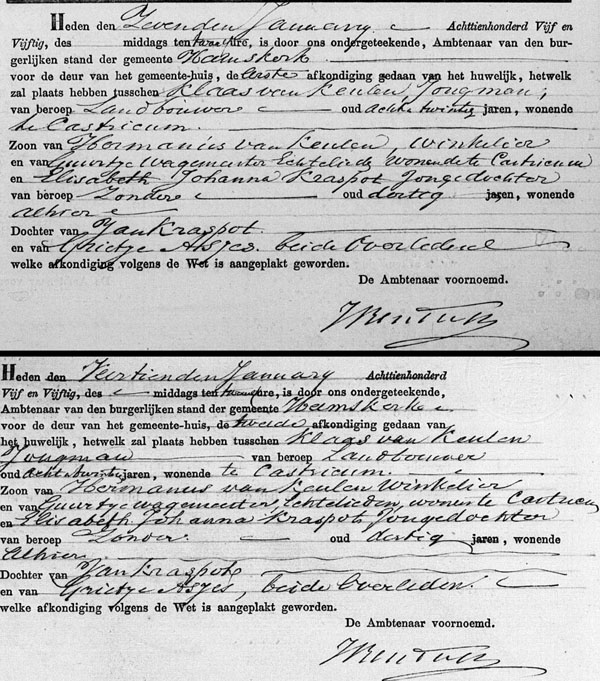 Heden den Zevenden January Achttienhonderd Vijf en
Vijftig, des middags ten twee ure, is door ons ondergeteekende, Ambtenaar van den bur-
gerlijken stand der gemeente Heemskerk
voor de deur van het gemeente-huis, de Eerste afkondiging gedaan van het huwelijk, hetwelk
zal plaats hebben tusschen Klaas van Keulen Jongman,
van beroep Landbouwer oud acht twintig jaren, wonende
te Castricum.
Zoon van Hermanus van Keulen, Winkelier
en van Guurtje Wagemeester Echtelieden Wonende te Castricum
en Elisabeth Johanna Kraspot Jongedochter
van beroep Zonder oud dertig jaren, wonende
alhier
Dochter van Jan Kraspot
en van Grietje Asjes, beide Overledene
welke afkondiging volgens de Wet is aangeplakt geworden.
De Ambtenaar voornoemd.
Heden den Veertienden January Achttienhonderd
Vijf en Vijftig, des middags ten twee ure, is door ons ondergeteekende,
Ambtenaar van den burgerlijken stand der gemeente Heemskerk
voor de deur van het gemeente-huis, de tweede afkondiging gedaan van
het huwelijk, hetwelk zal plaats hebben tusschen Klaas van Keulen
Jongman van beroep Landbouwer
oud acht twintig jaren, wonende te Castricum.
Zoon van Hermanus van Keulen Winkelier
en van Guurtje wagemeester, Echtelieden, wonende te Castricum
en Elisabeth Johanna Kraspot, Jongedochter
van beroep Zonder oud dertig jaren, wonende
alhier
Dochter van Jan Kraspot
en van Grietje Asjes, beide Overleden.
welke afkondiging volgens de Wet is aangeplakt geworden.
De Ambtenaar voornoemd.